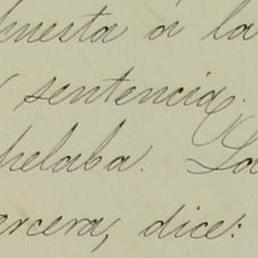 puesta á la
sentencia.
helaba. La
ercera, dice: